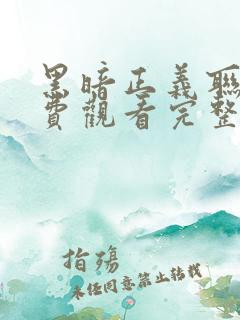 黑暗正義聯
費觀看完整
指殤
未任同意禁止转载